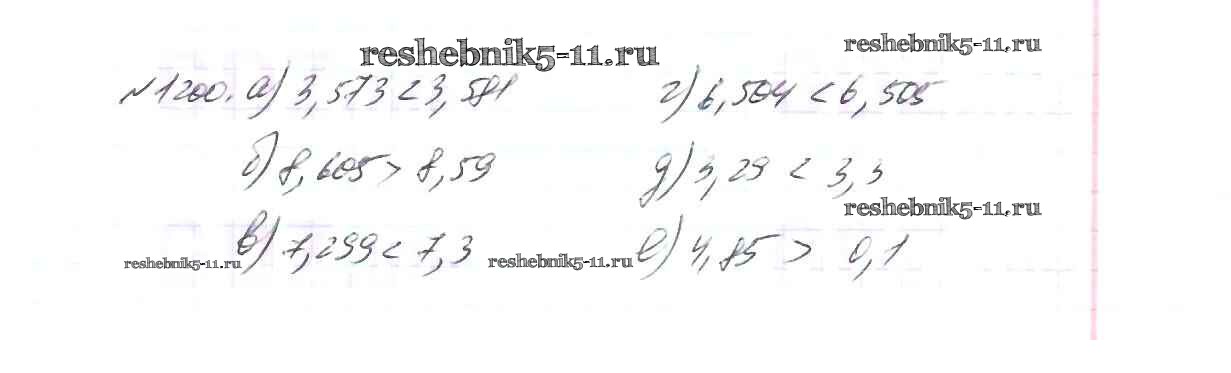 reshebnik5-11.ru
reshebnik5-11.ru
№1200. а) 3,573 < 3,581 г) 6,504 < 6,505
б) 8,605 > 8,59 д) 3,29 < 3,3
reshebnik5-11.ru
в) 7,299 < 7,3 е) 4,85 > 0,1
reshebnik5-11.ru
reshebnik5-11.ru